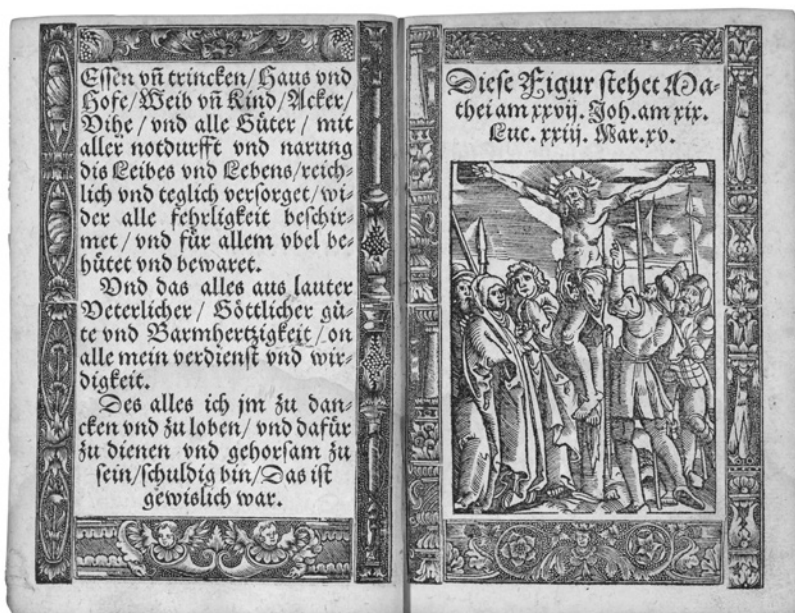 Essen vñ trincken/Haus vnd
Hofe/Weib vñ Kind/Acker/
Vihe / vnd alle Güter / mit
aller notdurfft vnd narung
dis Leibes vnd Lebens/reich⸗
lich vnd teglich versorget/wi⸗
der alle fehrligkeit beschir⸗
met / vnd für allem vbel be⸗
hütet vnd bewaret.
Vnd das alles aus lauter
Veterlicher / Göttlicher gü⸗
te vnd Barmhertzigkeit / on
alle mein verdienst vnd wir⸗
digkeit.
Des alles ich jm zu dan⸗
cken vnd zu loben/ vnd dafür
zu dienen vnd gehorsam zu
sein/schuldig bin/Das ist
gewislich war.
Diese Figur stehet Ma⸗
thei am xxvij. Joh. am xix.
Luc. xxiij. Mar. xv.